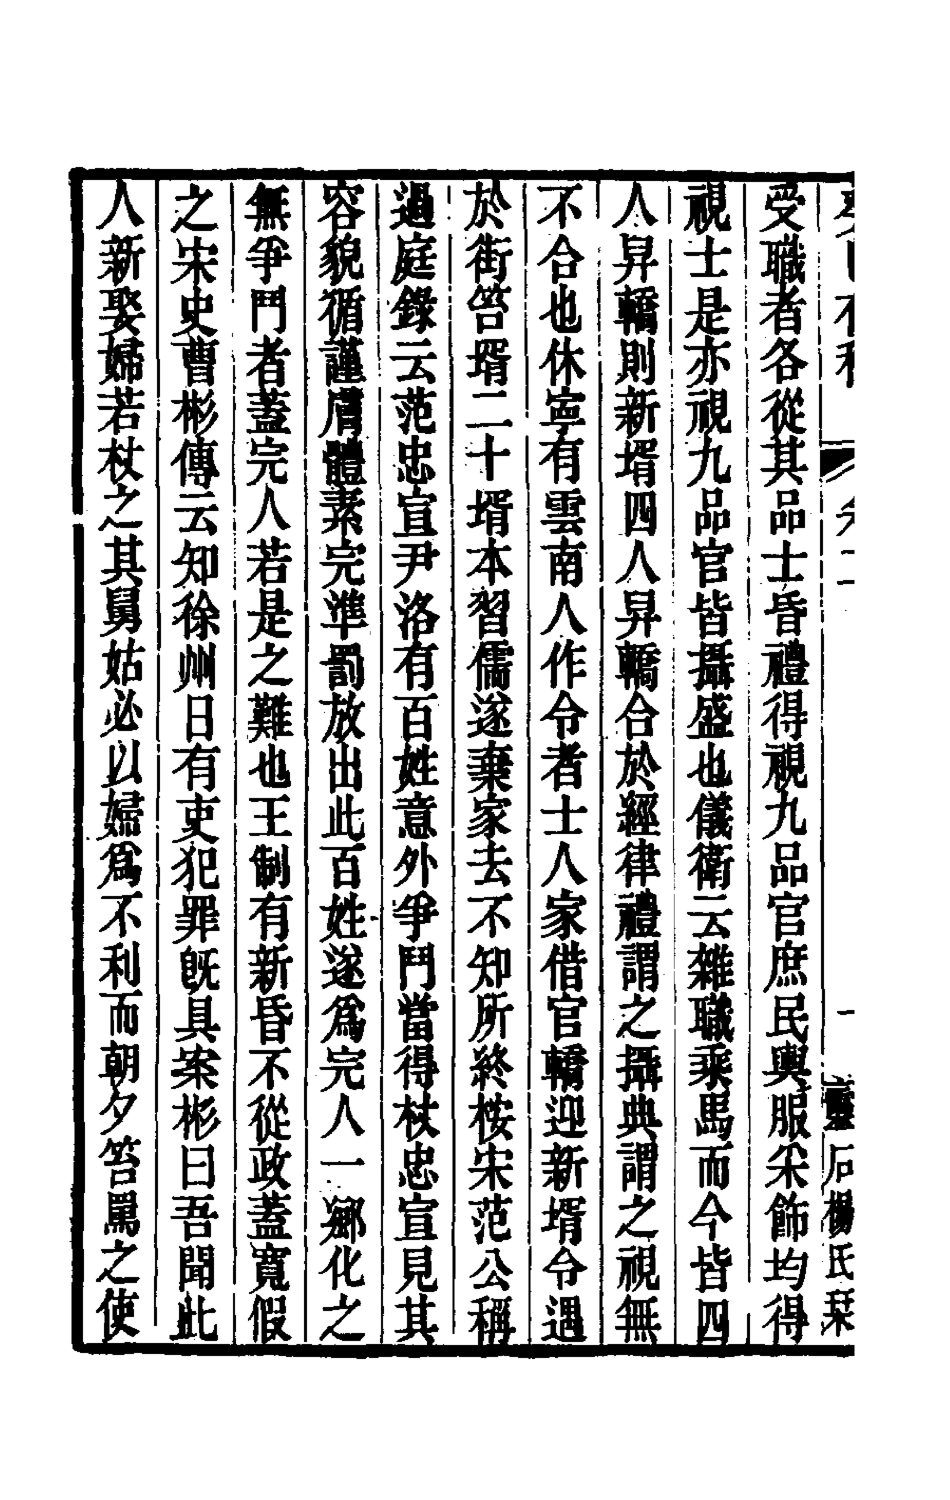 癸巳存稿 卷二 一 靈石楊氏栞
受職者各從其品士昏禮得視九品官庶民輿服采飾均得
視士是亦視九品官皆攝盛也儀衛云雜職乘馬而今皆四
人舁轎則新壻四人舁轎合於經律禮謂之攝典謂之視無
不合也休寧有雲南人作令者士人家借官轎迎新壻令遇
於街笞壻二十壻本習儒遂棄家去不知所終桉宋范公稱
過庭錄云范忠宣尹洛有百姓意外爭鬥當得杖忠宣見其
容貌循謹膚體素完準罰放出此百姓遂爲完人一鄉化之
無爭鬥者蓋完人若是之難也王制有新昏不從政蓋寬假
之宋史曹彬傳云知徐州日有吏犯罪旣具案彬曰吾聞此
人新娶婦若杖之其舅姑必以婦爲不利而朝夕笞罵之使